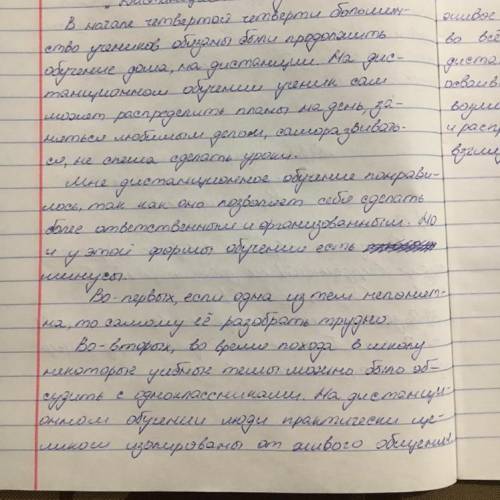 В начале четвертой четверти большин-
ство учеников обязаны были продолжить
обучение дома, на дистанции. На дис-
танционном обучении ученик сам
может распределить планы на день, за-
няться любимым делом, саморазвиват-
ся, не спеша сделать уроки.
Мне дистанционное обучение понрави-
лось, так как оно позволяет себя сделать
более ответственным и организованным. Но
и у этой формы обучения есть
минусы.
Во-первых, если одна из тем непонят-
на, то самому её разобрать трудно.
Во-вторых, во время похода в школу
некоторые учебные темы можно было об-
судить с одноклассниками. На дистанци-
онном обучении люди практически це-
ликом изолированы от живого общения
живое
во всё
диста
осваив
возмо
и расп
взгляд